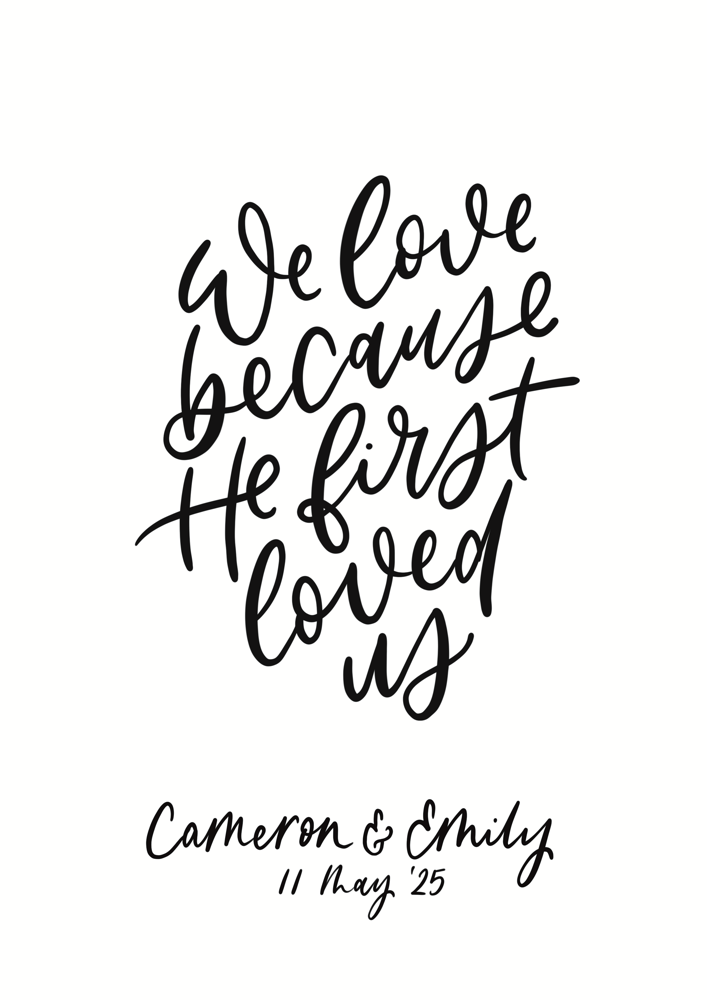 We love
because
He first
loved
us
Cameron & Emily
11 May '25